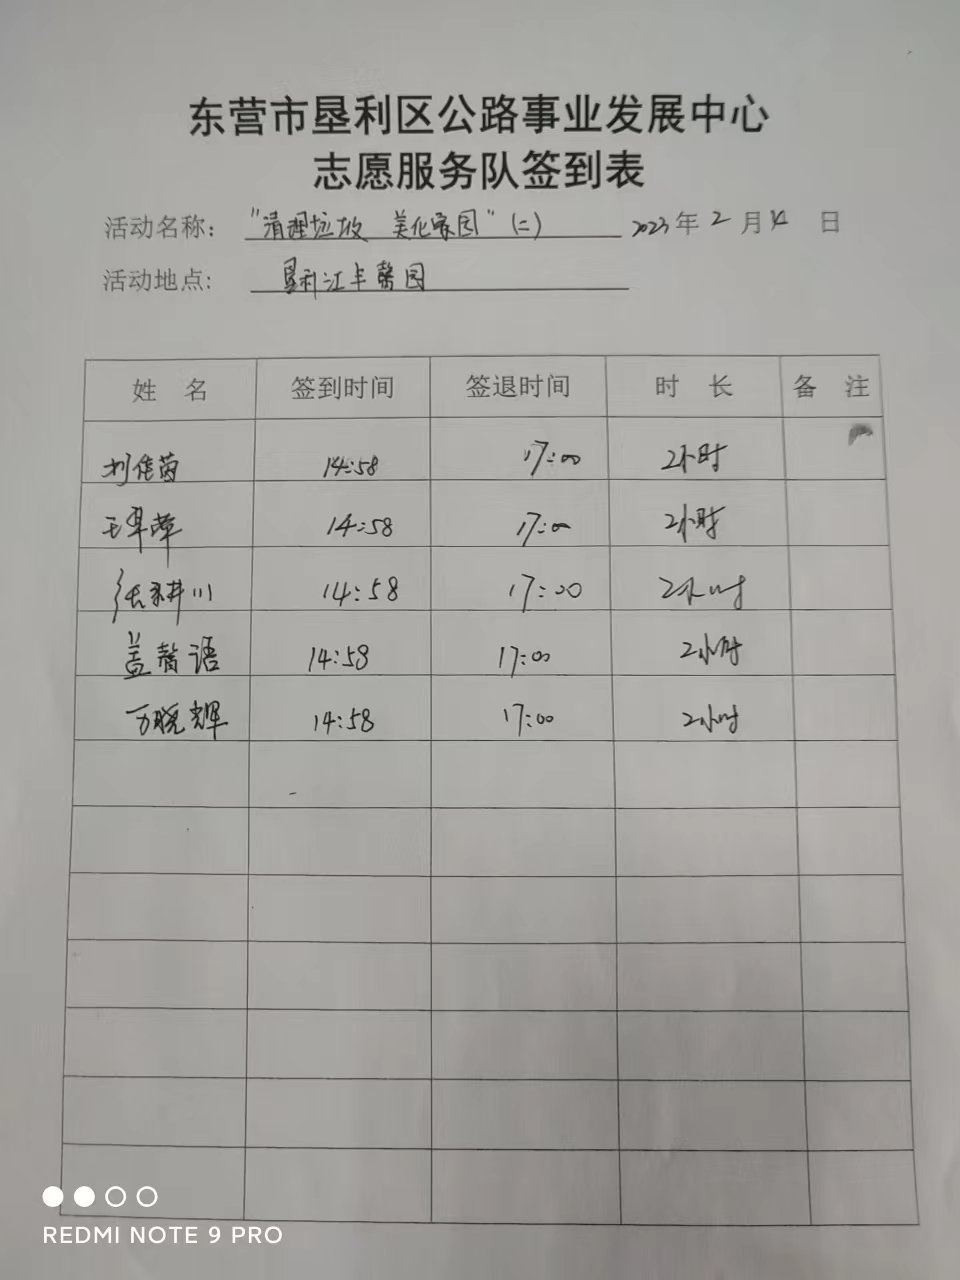 东营市垦利区公路事业发展中心
志愿服务队签到表
活动名称： "清理垃圾 美化家园"(二) 2023年 2 月 14 日
活动地点: 垦利江丰馨园
姓 名 签到时间 签退时间 时 长 备 注
刘佳茵 14:58 17:00 2小时
14:58 17:00 2小时
张耕川 14:58 17:00 2小时
盖馨语 14:58 17:00 2小时
万晓辉 14:58 17:00 2小时
REDMI NOTE 9 PRO